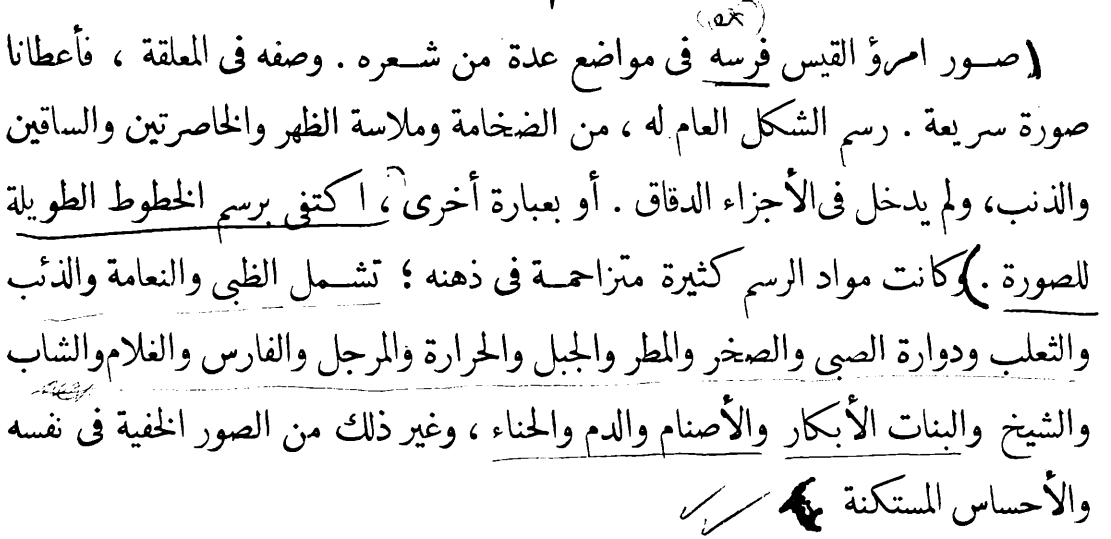 (صـور امرؤ القيس فرسه فى مواضع عدة من شـعره . وصفه فى المعلقة ، فأعطانا
صورة سريعة . رسم الشكل العام له ، من الضخامة وملاسة الظهر والخاصرتين والساقين
والذنب، ولم يدخل فى الأجزاء الدقاق . أو بعبارة أخرى ، اكتفى برسم الخطوط الطويلة
للصورة .) وكانت مواد الرسم كثيرة متزاحمـة فى ذهنه ؛ تشـمل الظبى والنعامة والذئب
والثعلب ودوارة الصبى والصخر والمطر والجبل والحرارة والمرجل والفارس والغلام والشاب
والشيخ والبنات الأبكار والأصنام والدم والحناء ، وغير ذلك من الصور الخفية فى نفسه
والأحساس المستكنة